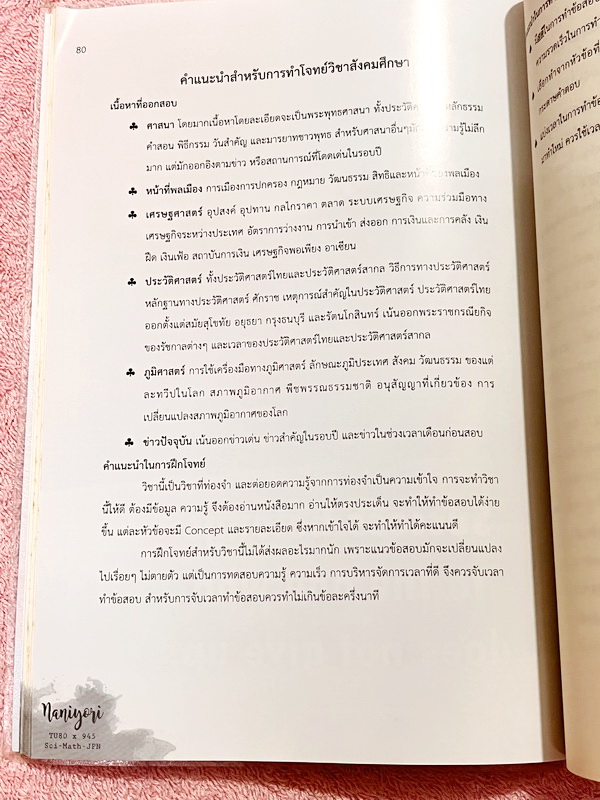 80
คำแนะนำสำหรับการทำโจทย์วิชาสังคมศึกษา
เนื้อหาที่ออกสอบ
♣ ศาสนา โดยมากเนื้อหาโดยละเอียดจะเป็นพระพุทธศาสนา ทั้งประวัติ หลักธรรม
คำสอน พิธีกรรม วันสำคัญ และมารยาทชาวพุทธ สำหรับศาสนาอื่นๆ รู้ไม่ลึก
มาก แต่มักออกอิงตามข่าว หรือสถานการณ์ที่โดดเด่นในรอบปี
♣ หน้าที่พลเมือง การเมืองการปกครอง กฎหมาย วัฒนธรรม สิทธิและหน้า พลเมือง
♣ เศรษฐศาสตร์ อุปสงค์ อุปทาน กลไกราคา ตลาด ระบบเศรษฐกิจ ความร่วมมือทาง
เศรษฐกิจระหว่างประเทศ อัตราการว่างงาน การนำเข้า ส่งออก การเงินและการคลัง เงิน
ฝืด เงินเฟ้อ สถาบันการเงิน เศรษฐกิจพอเพียง อาเซียน
♣ ประวัติศาสตร์ ทั้งประวัติศาสตร์ไทยและประวัติศาสตร์สากล วิธีการทางประวัติศาสตร์
หลักฐานทางประวัติศาสตร์ ศักราช เหตุการณ์สำคัญในประวัติศาสตร์ ประวัติศาสตร์ไทย
ออกตั้งแต่สมัยสุโขทัย อยุธยา กรุงธนบุรี และรัตนโกสินทร์ เน้นออกพระราชกรณียกิจ
ของรัชกาลต่างๆ และเวลาของประวัติศาสตร์ไทยและประวัติศาสตร์สากล
♣ ภูมิศาสตร์ การใช้เครื่องมือทางภูมิศาสตร์ ลักษณะภูมิประเทศ สังคม วัฒนธรรม ของแต่
ละทวีปในโลก สภาพภูมิอากาศ พืชพรรณธรรมชาติ อนุสัญญาที่เกี่ยวข้อง การ
เปลี่ยนแปลงสภาพภูมิอากาศของโลก
♣ ข่าวปัจจุบัน เน้นออกข่าวเด่น ข่าวสำคัญในรอบปี และข่าวในช่วงเวลาเดือนก่อนสอบ
คำแนะนำในการฝึกโจทย์
วิชานี้เป็นวิชาที่ท่องจำ และต่อยอดความรู้จากการท่องจำเป็นความเข้าใจ การจะทำวิชา
นี้ให้ดี ต้องมีข้อมูล ความรู้ จึงต้องอ่านหนังสือมาก อ่านให้ตรงประเด็น จะทำให้ทำข้อสอบได้ง่าย
ขึ้น แต่ละหัวข้อจะมี Concept และรายละเอียด ซึ่งหากเข้าใจได้ จะทำให้ทำได้คะแนนดี
การฝึกโจทย์สำหรับวิชานี้ไม่ได้ส่งผลอะไรมากนัก เพราะแนวข้อสอบมักจะเปลี่ยนแปลง
ไปเรื่อยๆ ไม่ตายตัว แต่เป็นการทดสอบความรู้ ความเร็ว การบริหารจัดการเวลาที่ดี จึงควรจับเวลา
ทำข้อสอบ สำหรับการจับเวลาทำข้อสอบควรทำไม่เกินข้อละครึ่งนาที
Naniyori
TU80 x 945
Sci-Math-JPN